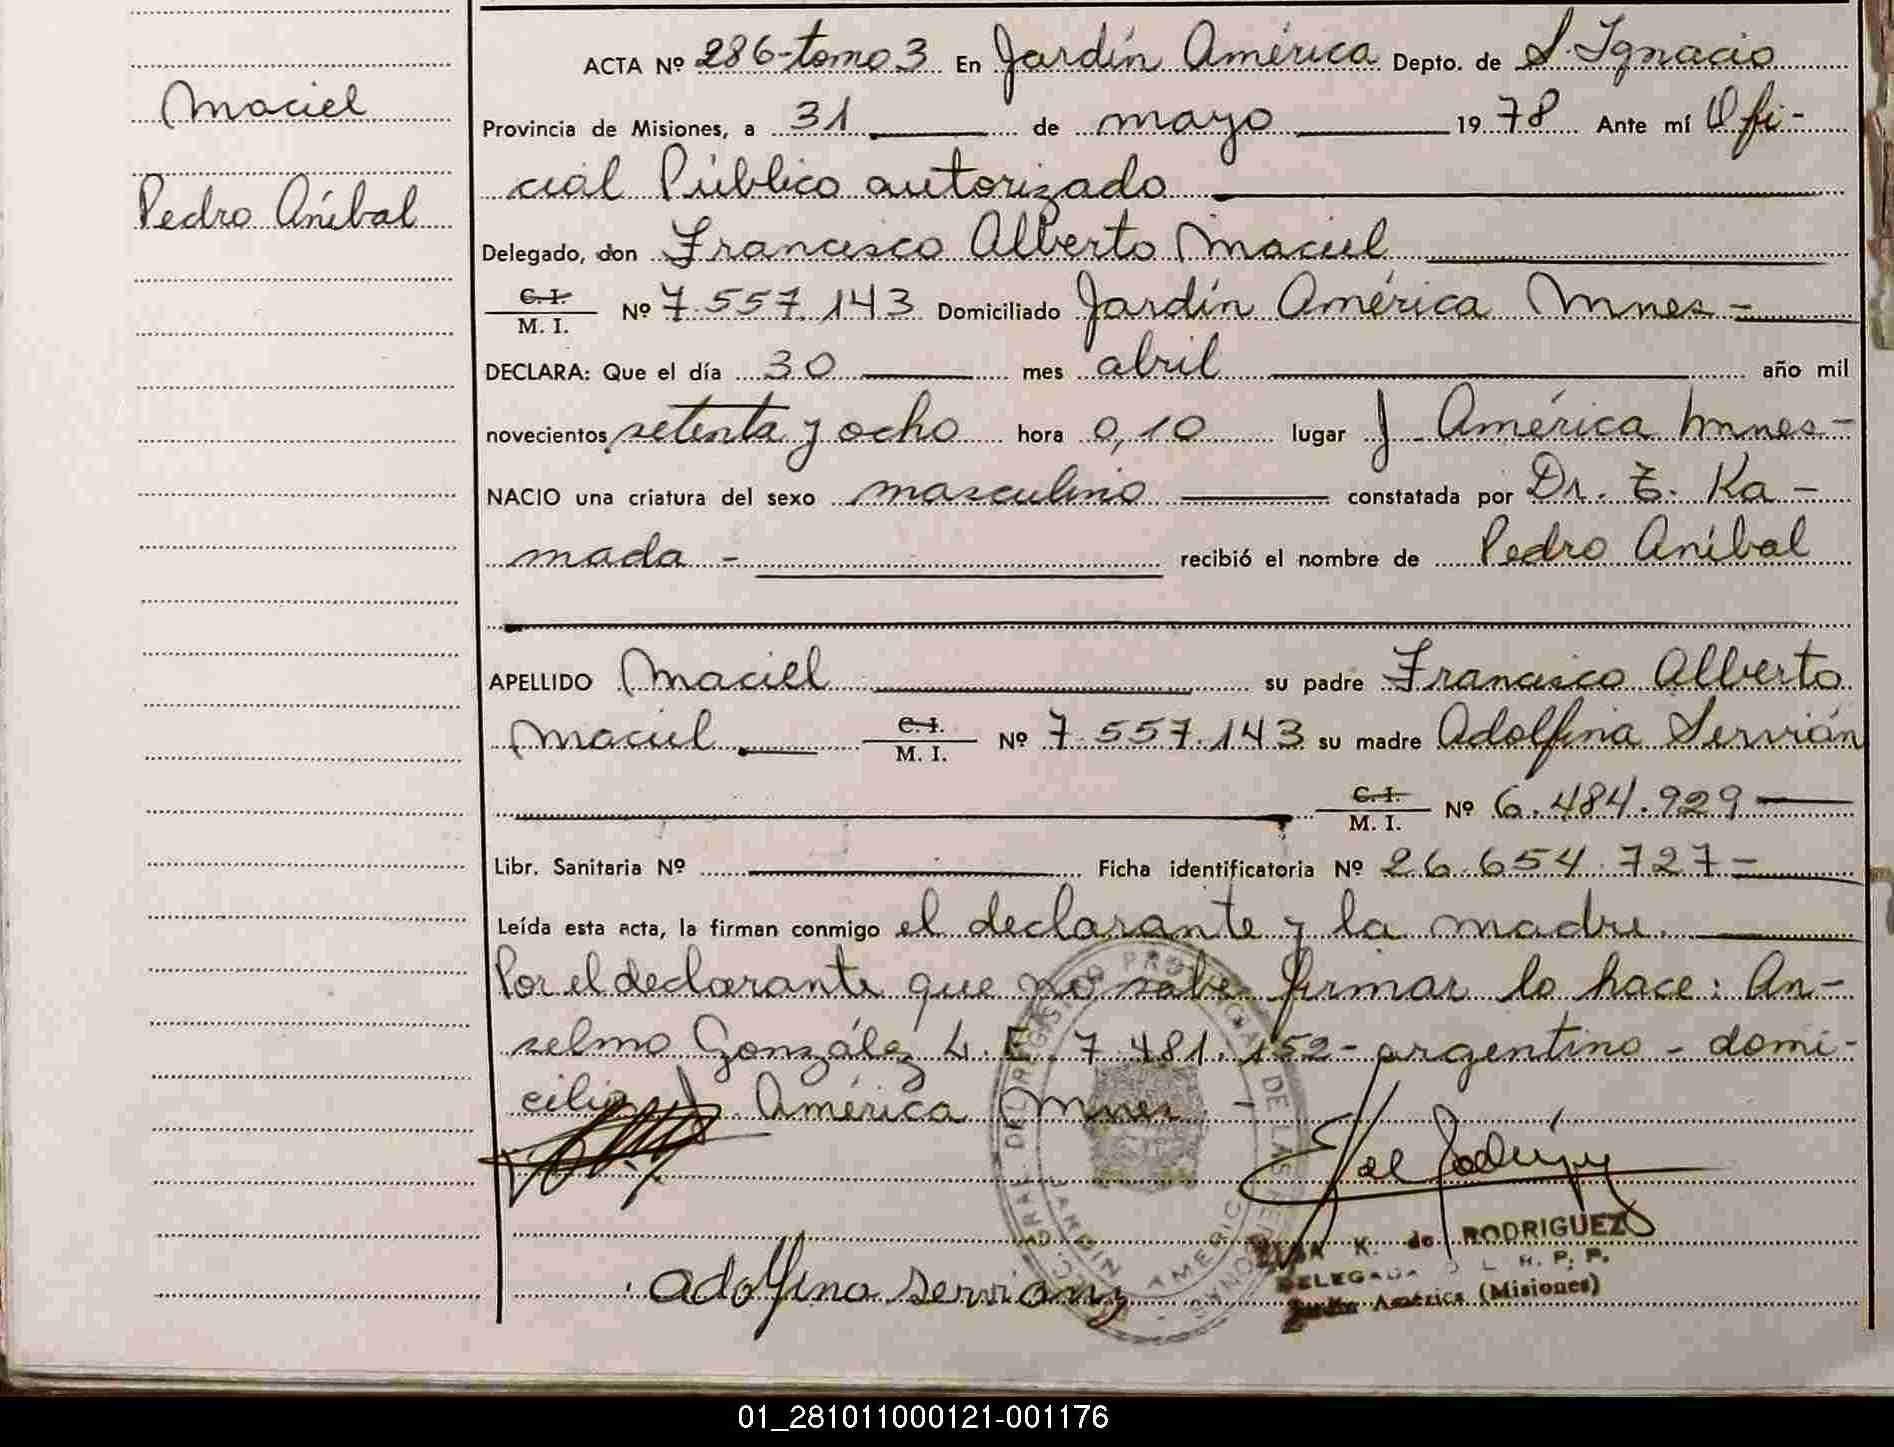 Maciel
Pedro Aníbal
ACTA Nº 286-tomo 3 En Jardín América Depto. de S. Ignacio
Provincia de Misiones, a 31 de mayo 1978 Ante mí Ofi-
cial Público autorizado
Delegado, don Francisco Alberto Maciel
C. I. / M. I. Nº 7.557.143 Domiciliado Jardín América Mnes-
DECLARA: Que el día 30 mes abril año mil
novecientos setenta y ocho hora 0,10 lugar J. América Mnes-
NACIO una criatura del sexo masculino constatada por Dr. T. Ka-
mada - recibió el nombre de Pedro Aníbal
APELLIDO Maciel su padre Francisco Alberto
Maciel C. I. / M. I. Nº 7.557.143 su madre Adolfina Servián
C. I. / M. I. Nº 6.484.929
Libr. Sanitaria Nº Ficha identificatoria Nº 26.654.727-
Leída esta acta, la firman conmigo el declarante y la madre.
Por el declarante que no sabe firmar lo hace: An-
selmo González L.E. 7.481.152- argentino - domi-
cilio J. América Mnes -
Adolfina Servian
K. de RODRIGUEZ
DELEGADA D L R. P. P.
Jardín América (Misiones)
REGISTRO PROVINCIAL DE LAS PERSONAS
JARDIN AMERICA
01_281011000121-001176